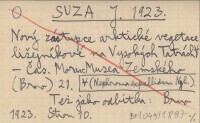 SUZA J. 1923.
Nový zástupce arktické vegetace
lišejníkové na Vysokých Tatrách
Čas. Morav. Musea Zemského
(Brno) 21. (Nephroma
Též jako odbitka: Brno
1923. Stran 10.